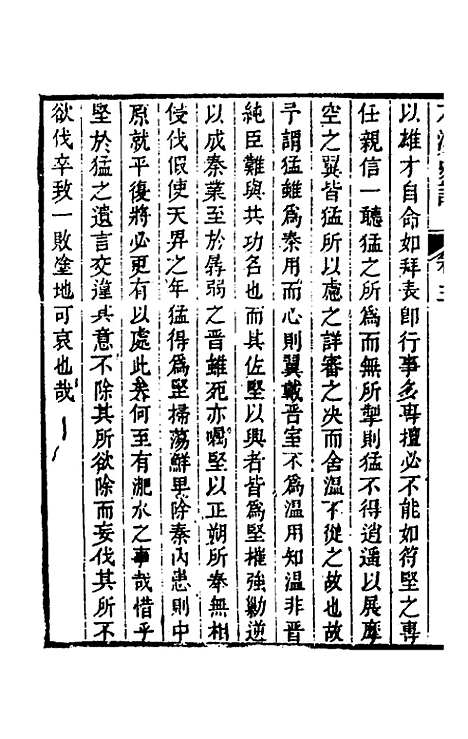 卷三
以雄才自命如拜表即行事多專擅必不能如符堅之專
任親信一聽猛之所為而無所掣則猛不得逍遥以展摩
空之翼皆猛所以慮之詳審之决而舍溫不從之故也故
予謂猛雖為秦用而心則翼戴晉室不為溫用知溫非晉
純臣難與共功名也而其佐堅以興者皆為堅摧強勦逆
以成秦業至於孱弱之晉雖死亦囑堅以正朔所奉無相
侵伐假使天畀之年猛得為堅掃蕩鮮卑除秦內患則中
原就平復將必更有以處此矣何至有淝水之事哉惜乎
堅於猛之遺言交違其意不除其所欲除而妄伐其所不
欲伐卒致一敗塗地可哀也哉